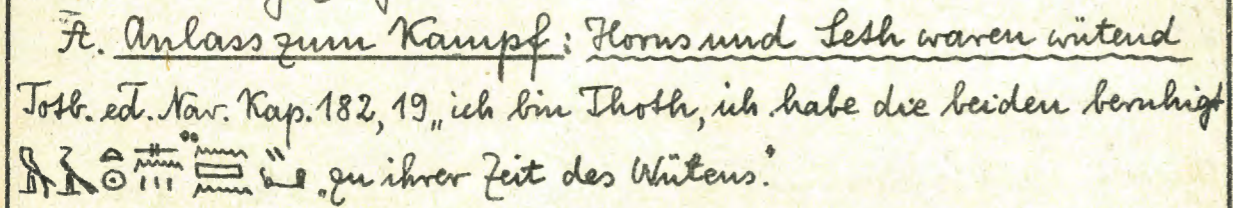 A. Anlass zum Kampf: Horus und Seth waren wütend
Totb. ed. Nav. Kap. 182, 19 „ich bin Thoth, ich habe die beiden beruhigt
„zu ihrer Zeit des Wütens."